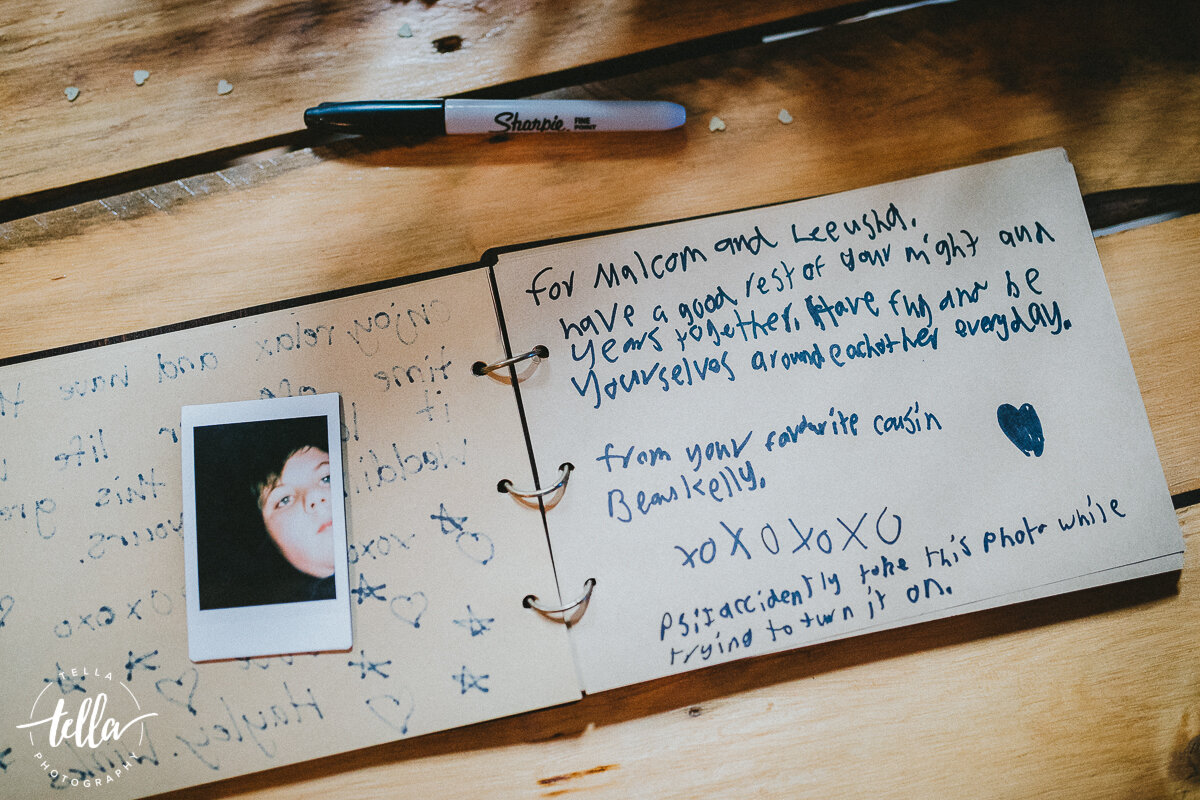 Sharpie FINE POINT
For Malcom and Leeusha,
have a good rest of your night and
years together. Have fun and be
yourselves around eachother everyday.
from your favourite cousin
Beau kelly.
xoXoXoXO
PS:I accidently take this photo while
trying to turn it on.
enjoy relax and have
time
it life
this
yours.
xoxo
Hayley.
TELLA
tella
PHOTOGRAPHY